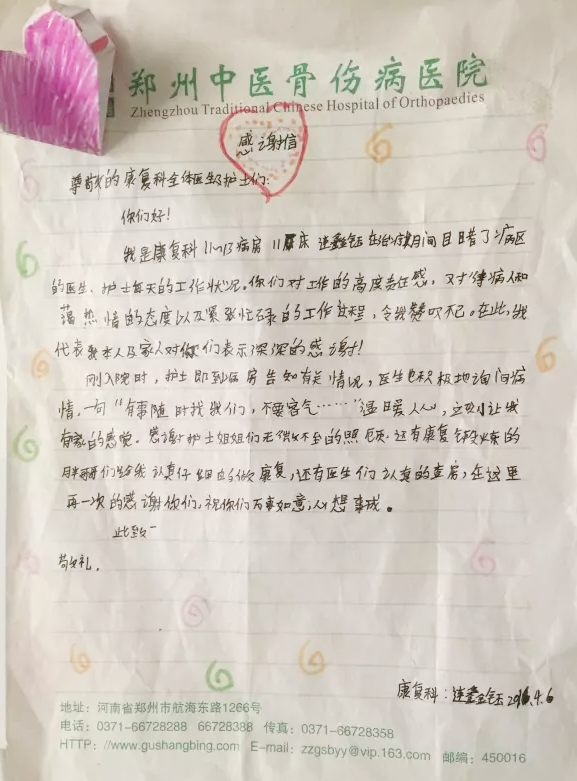 郑州中医骨伤病医院
Zhengzhou Traditional Chinese Hospital of Orthopaedies
感谢信
尊敬的康复科全体医生及护士们:
你们好!
我是康复科 病房 11床 连鑫钰 在治疗期间目睹了病区
的医生、护士每天的工作状况。你们对工作的高度责任感,又对待病人和
蔼热情的态度以及紧张忙碌的工作过程,令我赞叹不已。在此,我
代表我本人及家人对你们表示深深的感谢!
刚入院时,护士即到病房告知有关情况,医生也积极地询问病
情,一句“有事随时找我们,不要客气……”温暖人心,立刻让我
有家的感觉。感谢护士姐姐们无微不至的照顾,还有康复锻炼的
姐姐们给我认真仔细的做康复,还有医生们认真的查房,在这里
再一次的感谢你们,祝你们万事如意,心想事成。
此致
敬礼.
康复科:连鑫钰 2016.4.6
地址:河南省郑州市航海东路1266号
电话:0371-66728288 66728388 传真:0371-66728358
HTTP://www.gushangbing.com E-mail:zzgsbyy@vip.163.com 邮编:450016